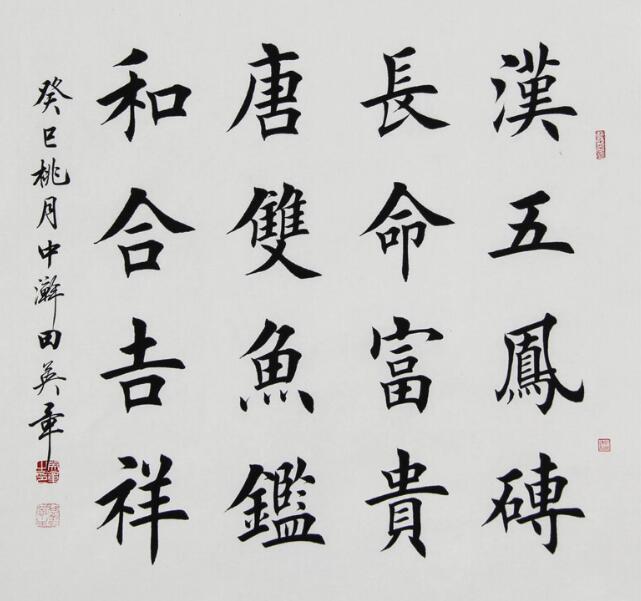 漢五鳳磚
長命富貴
唐雙魚鑑
和合吉祥
癸巳桃月中澣田英章